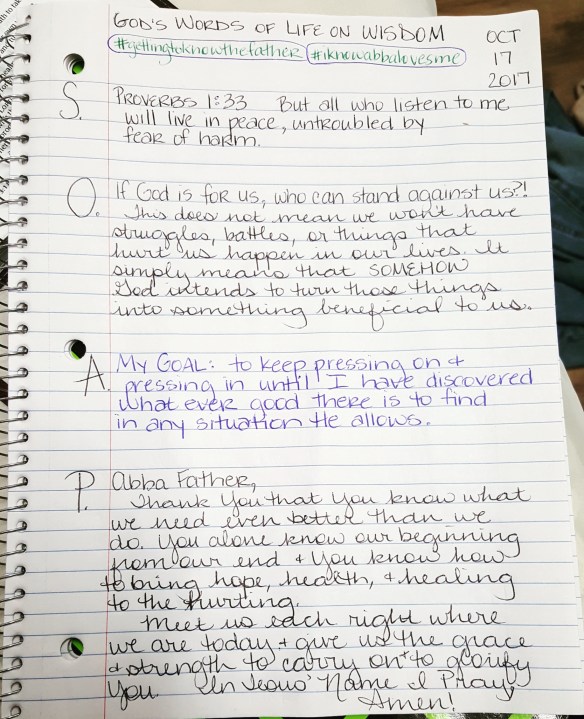 GOD'S WORDS OF LIFE ON WISDOM
#gettingtoknowthefather #iknowabbalovesme
OCT
17
2017
S. PROVERBS 1:33 But all who listen to me
will live in peace, untroubled by
fear of harm.
O. If God is for us, who can stand against us?!
This does not mean we won't have
struggles, battles, or things that
hurt us happen in our lives. It
simply means that SOMEHOW
God intends to turn those things
into something beneficial to us.
A. MY GOAL: to keep pressing on +
pressing in until I have discovered
what ever good there is to find
in any situation He allows.
P. Abba Father,
Thank You that You know what
we need even better than we
do. You alone know our beginning
from our end + You know how
to bring hope, health, + healing
to the hurting.
Meet us each right where
we are today + give us the grace
+ strength to carry on + to glorify
You. In Jesus' Name I Pray,
Amen!